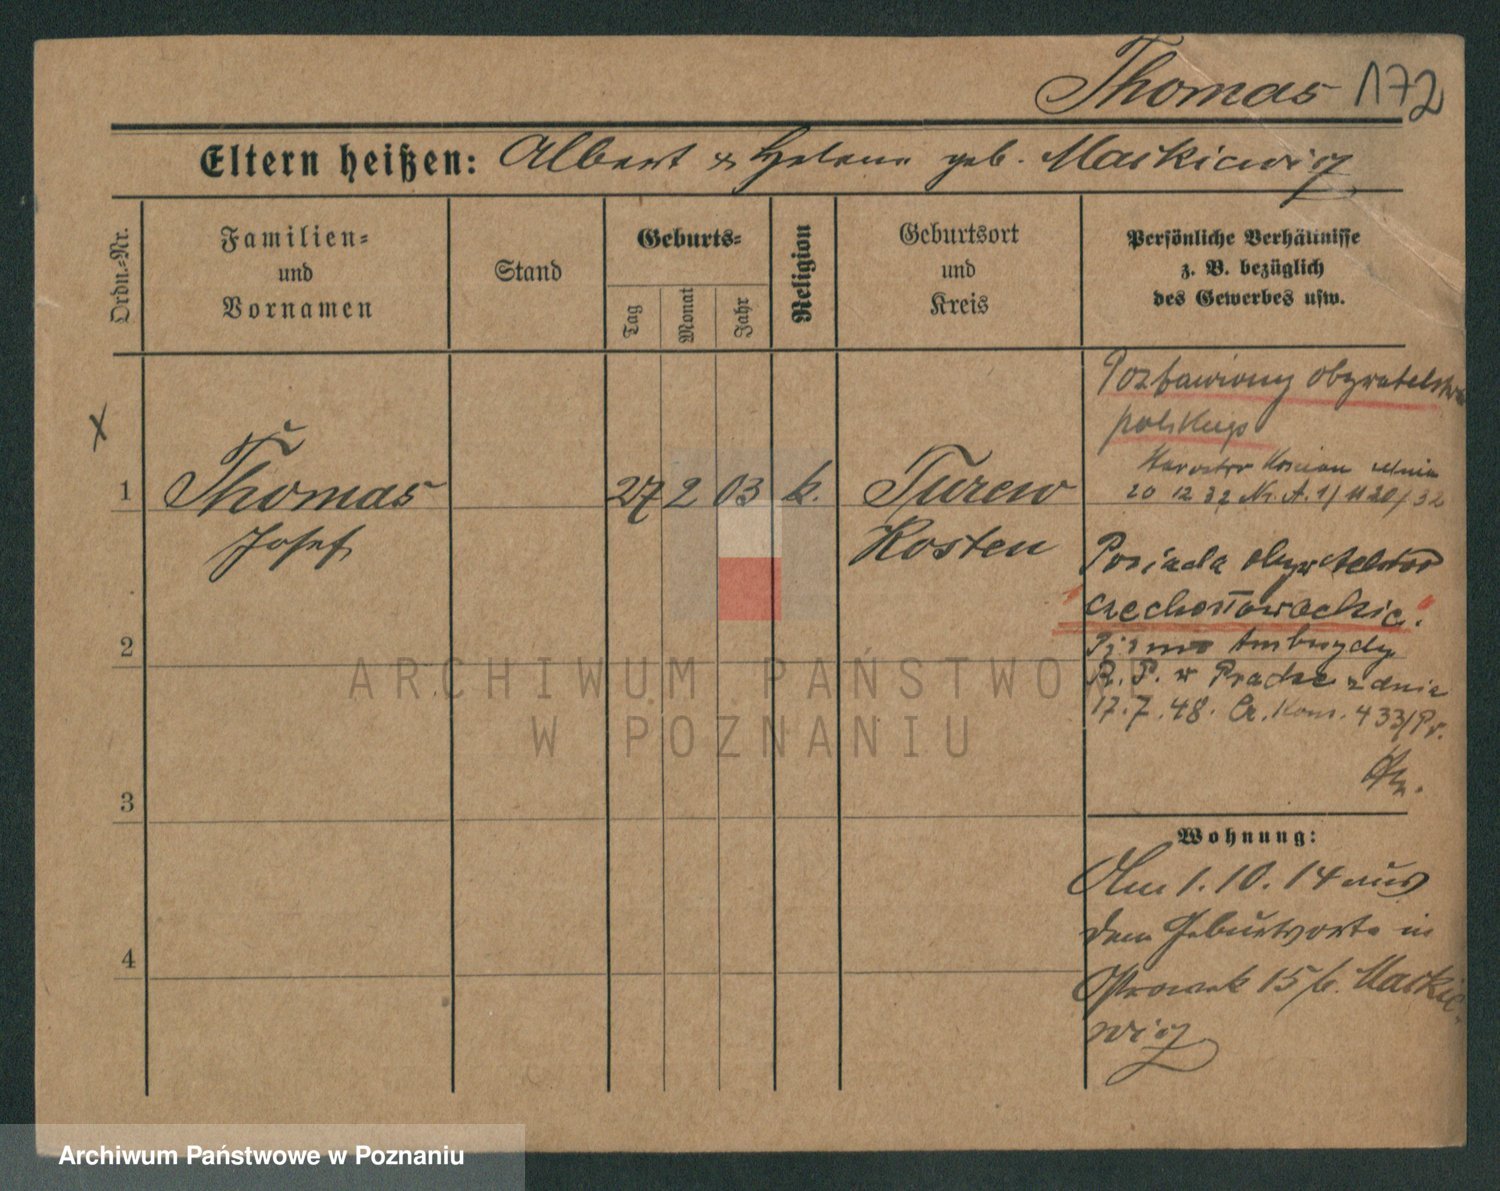 Thomas 172
Eltern heißen: Albert & Helene geb. Maikiewicz
Ordn.-Nr.
Familien-
und
Vornamen
Stand
Geburts-
Tag
Monat
Jahr
Religion
Geburtsort
und
Kreis
Persönliche Verhältnisse
z. B. bezüglich
des Gewerbes usw.
Pozbawiony obywatelstwa
polskiego
Starostwo Kościan dnia
20 12 32 Nr. A. 1/1120/32
x
1 Thomas 27 2 03 k. Turew
Josef Kosten
Posiada obywatelstwo
"czechosłowackie."
Pismo Ambasady
R. P. w Pradze z dnia
17.7.48. Kons. 433/Pr.
2
3
4
Wohnung:
Am 1.10.14 aus
dem Geburtsorte in
Ostrowek 15 b. Maikie-
wicz
ARCHIWUM PAŃSTWOWE
W POZNANIU
Archiwum Państwowe w Poznaniu